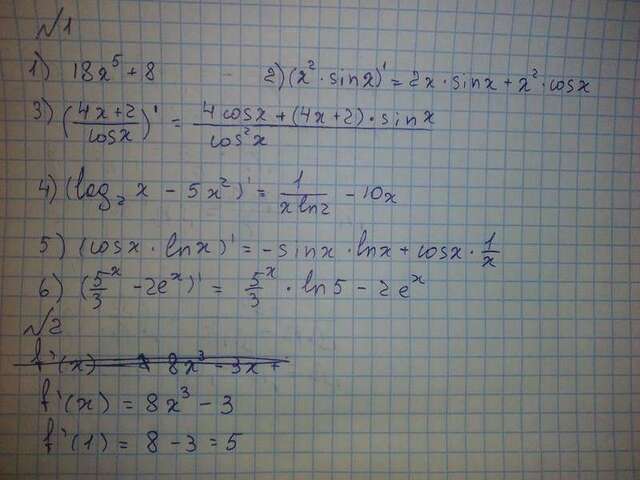 №1
1) 18x⁵ + 8 2) (x² · sinx)' = 2x · sinx + x² · cosx
3) ((4x+2)/cosx)' = (4cosx + (4x+2) · sinx)/cos²x
4) (log₂ x − 5x²)' = 1/(x ln2) − 10x
5) (cosx · lnx)' = −sinx · lnx + cosx · 1/x
6) (5ˣ/3 − 2eˣ)' = 5ˣ/3 · ln5 − 2eˣ
№2
f'(x) = 8x³ − 3x +
f'(x) = 8x³ − 3
f'(1) = 8 − 3 = 5